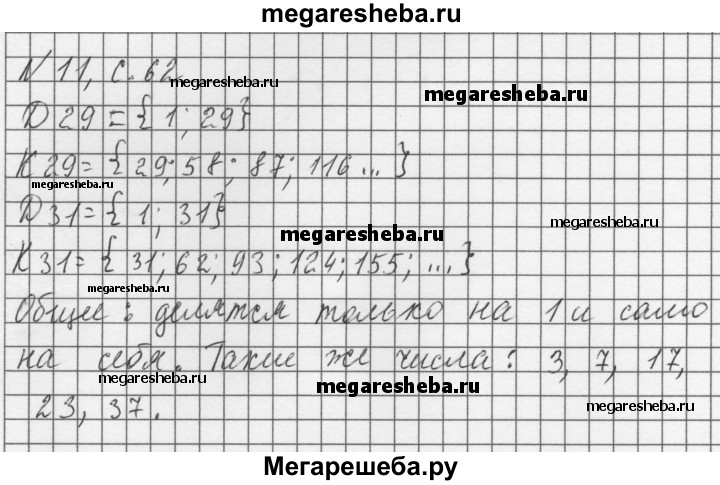 megaresheba.ru
N 11, с. 62.
megaresheba.ru
megaresheba.ru
D 29 = { 1; 29}
K 29 = { 29; 58; 87; 116 ... }
megaresheba.ru
D 31 = { 1; 31}
megaresheba.ru
megaresheba.ru
K 31 = { 31; 62; 93; 124; 155; ...}
megaresheba.ru
Общее: делятся только на 1 и само
на себя. Такие же числа: 3, 7, 17,
megaresheba.ru
megaresheba.ru
23, 37.
megaresheba.ru
Мегарешеба.ру